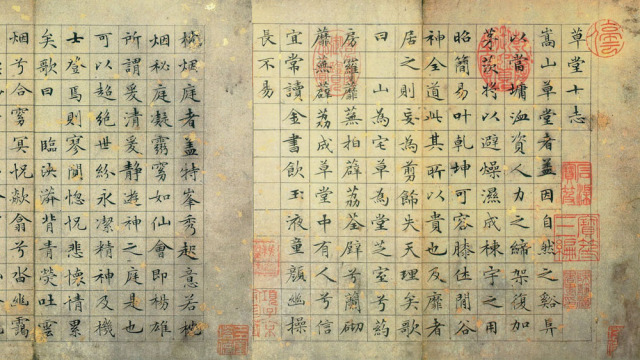 草堂十志
嵩山草堂者盖因自然之谿阜
以當墉洫資人力之締架復加
茅茨將以避燥濕成棟宇之用
昭簡易叶乾坤可容膝休閒谷
神全道此其所以貴也及靡者
居之則妄為剪飾失天理矣歌
曰 山為宅草為堂芝室兮葯
房羅蘼蕪拍薜荔荃壁兮蘭砌
蘼蕪薜荔成草堂中有人兮信
宜常讀金書飲玉液童顏幽操
長不易
枕煙庭者盖特峯秀起意若枕
煙秘庭凝霧窅如仙會即楊雄
所謂爰清爰靜遊神之庭是也
可以超絕世紛永潔精神及機
士登焉則寥闃惚怳悲懷情累
矣歌曰 臨泱漭背青熒吐雲
煙兮合窅冥怳欻翕兮沓幽靄